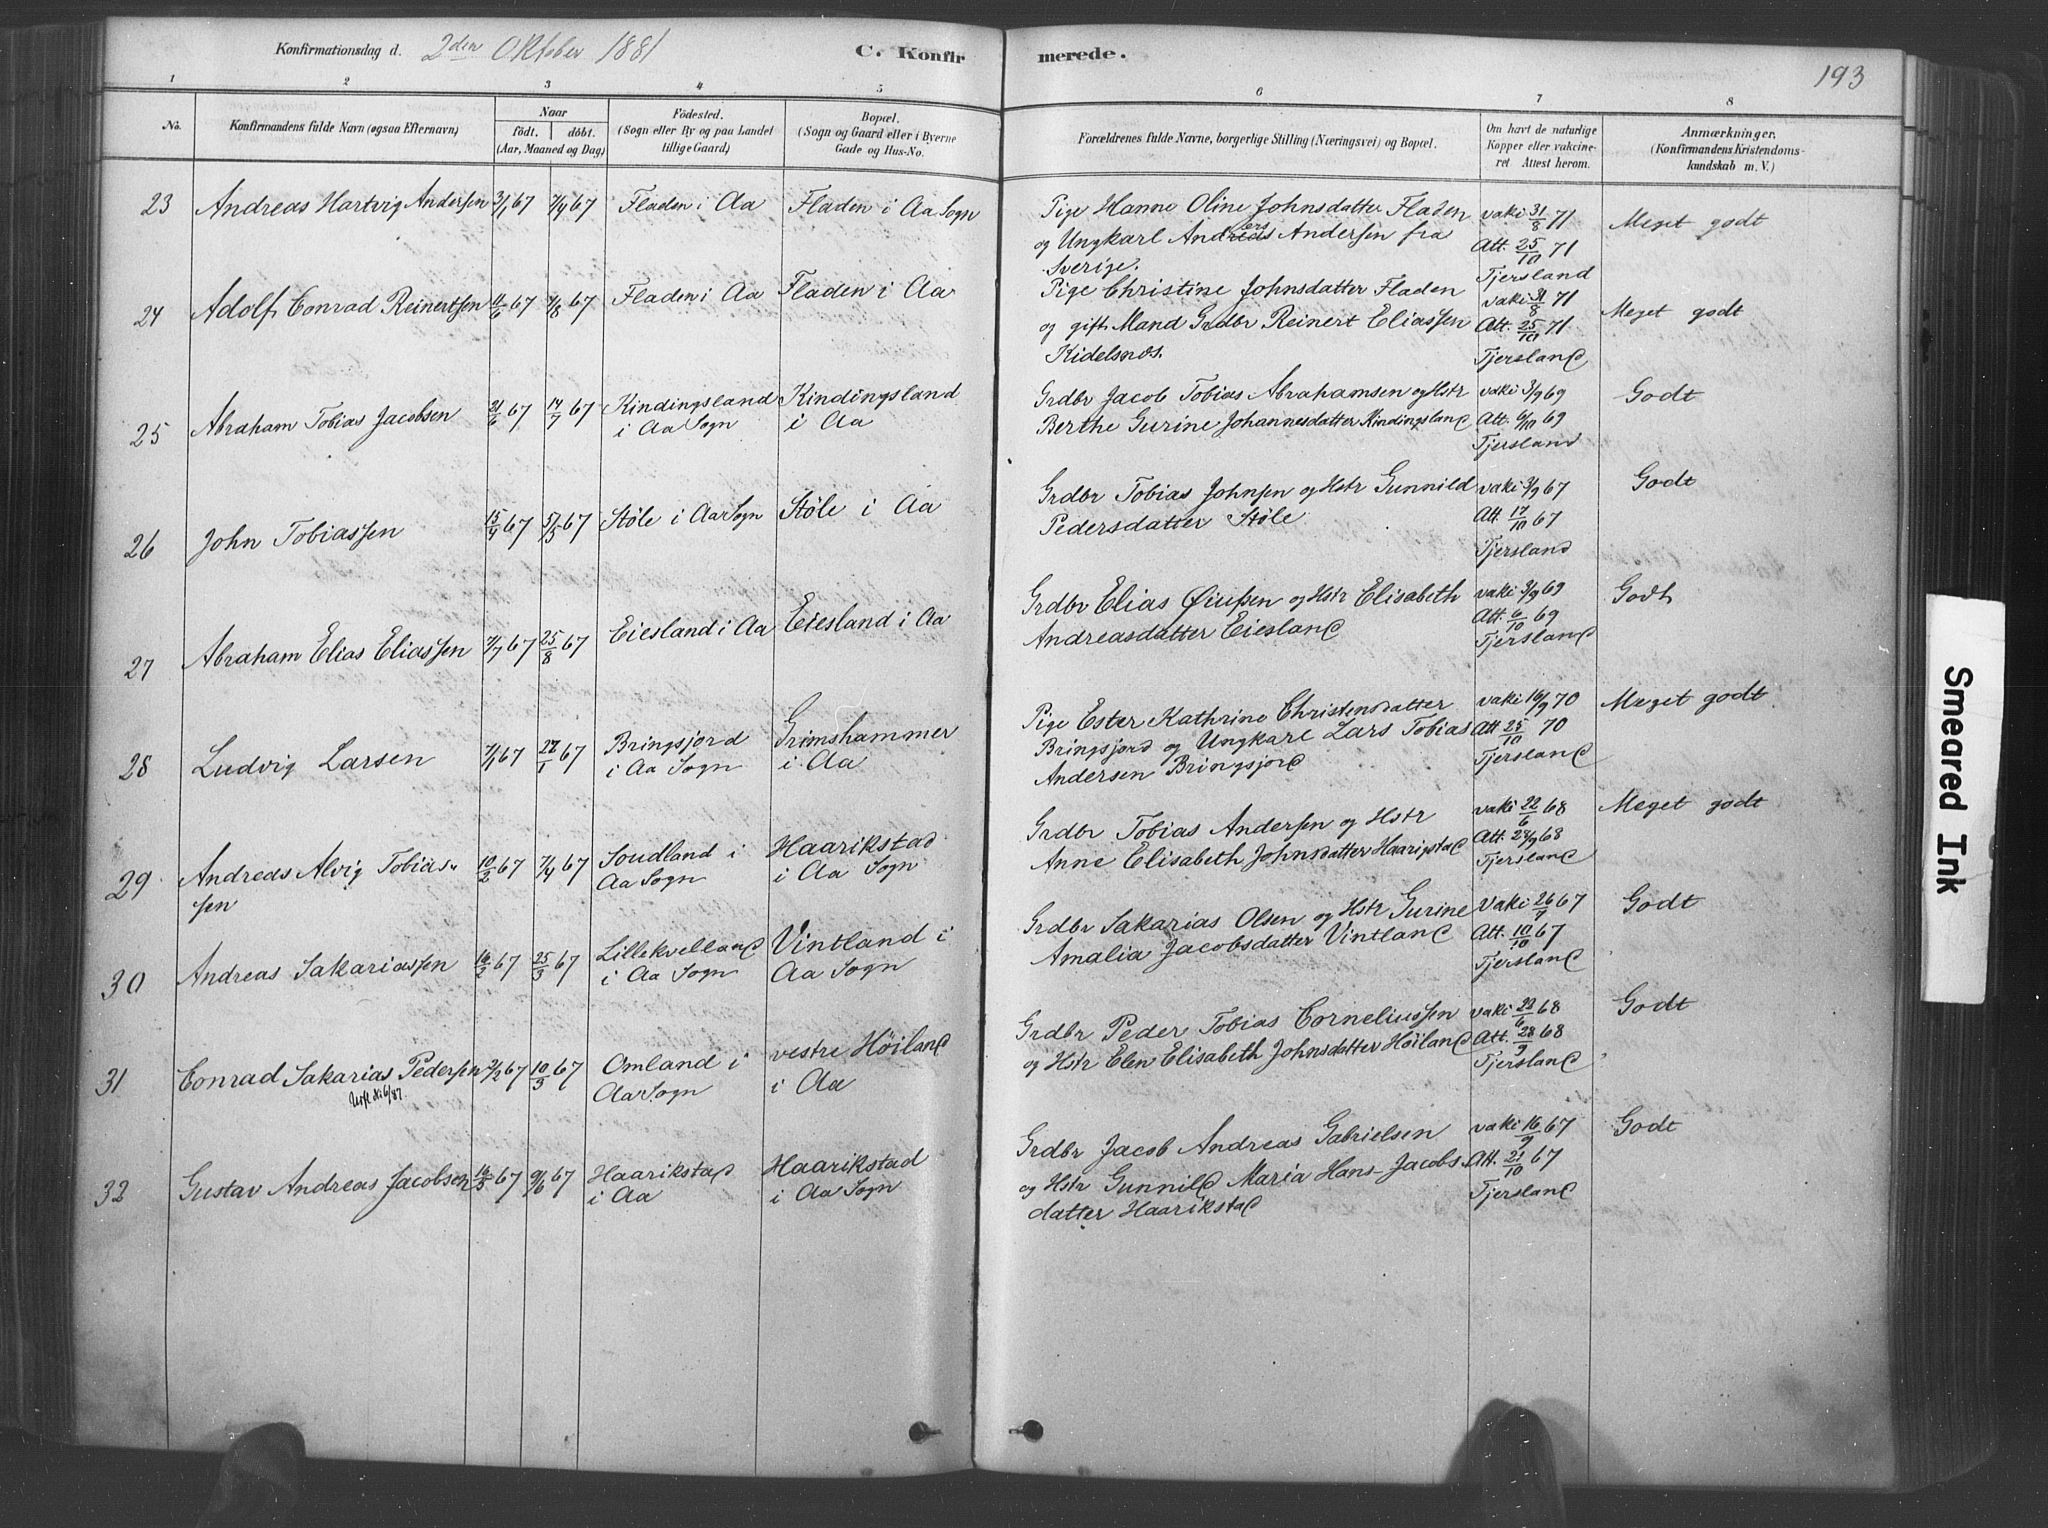 Konfirmationsdag d. 2den Oktober 1881 C. Konfirmerede. 193
1 2 3 4 5 6 7 8
No. Konfirmandens fulde Navn (ogsaa Efternavn) Naar født. døbt. (Aar, Maaned og Dag) Fødested. (Sogn eller By og paa Landet tillige Gaard.) Bopæl. (Sogn og Gaard eller i Byerne Gade og Hus-No. Forældrenes fulde Navne, borgerlige Stilling (Næringsvei) og Bopæl. Om havt de naturlige Kopper eller vakcineret Attest herom. Anmærkninger. (Konfirmandens Kristendomskundskab m. V.)
23 Andreas Hartvig Andersen 3/1 67 7/4 67 Fladen i Aa Fladen i Aa Sogn
Pige Hanne Oline Johnsdatter Fladen
og Ungkarl Anders Andersen fra
Sverige.
vaki 31/8 71
Att. 25/10 71
Tjersland
Meget godt
24 Adolf Conrad Reinertsen 11/6 67 4/8 67 Fladen i Aa Fladen i Aa
Pige Christine Johnsdatter Fladen
og gift Mand Grdbr Reinert Eliassen
Kidelsnæs.
vaki 31/8 71
Att. 25/10 71
Tjersland
Meget godt
25 Abraham Tobias Jacobsen 21/6 67 14/7 67 Kindingsland
i Aa Sogn
Kindingsland
i Aa
Grdbr Jacob Tobias Abrahamsen og Hstr
Berthe Gurine Johannesdatter Kindingsland
vaki 3/9 69
Att. 6/10 69
Tjersland
Godt
26 John Tobiassen 15/4 67 5/5 67 Støle i Aa Sogn Støle i Aa
Grdbr Tobias Johnsen og Hstr Gunnild
Pedersdatter Støle
vaki 3/9 67
Att. 17/10 67
Tjersland
Godt
27 Abraham Elias Eliassen 7/7 67 25/8 67 Eiesland i Aa Eiesland i Aa
Grdbr Elias og Hstr Elisabeth
Andreasdatter Eiesland
vaki 3/9 69
Att. 6/10 69
Tjersland
Godt
28 Ludvig Larsen 7/1 67 27/1 67 Bringsjord
i Aa Sogn
Grimshammer
i Aa
Pige Ester Kathrine Christensdatter
Bringsjord og Ungkarl Lars Tobias
Andersen Bringsjord
vaki 16/9 70
Att 25/10 70
Tjersland
Meget godt
29 Andreas Alvig Tobias-
sen
10/2 67 7/4 67 Soudland i
Aa Sogn
Haarikstad
i Aa Sogn
Grdbr Tobias Andersen og Hstr
Anne Elisabeth Johnsdatter Haarigstad
vaki 22/6 68
Att. 28/9 68
Tjersland
Meget godt
30 Andreas Sakariassen 16/2 67 25/3 67 Lillekvelland
i Aa Sogn
Vintland i
Aa Sogn
Grdbr Sakarias Olsen og Hstr Gurine
Amalia Jacobsdatter Vintland
Vaki 26/7 67
Att. 10/10 67
Tjersland
Godt
31 Conrad Sakarias Pedersen 2/2 67 10/3 67 Omland i
Aa Sogn
vestre Høiland
i Aa
Grdbr Peder Tobias Corneliussen
og Hstr Elen Elisabeth Johnsdatter Høiland
vaki 23/6 68
Att. 28/9 68
Tjersland
Godt
32 Gustav Andreas Jacobsen 16/5 67 9/6 67 Haarikstad
i Aa
Haarikstad
i Aa Sogn
Grdbr Jacob Andreas Gabrielsen
og Hstr Gunnild Maria Hans-Jacobs-
datter Haarikstad
vaki 16/9 67
Att. 21/10 67
Tjersland
Godt
Smeared Ink